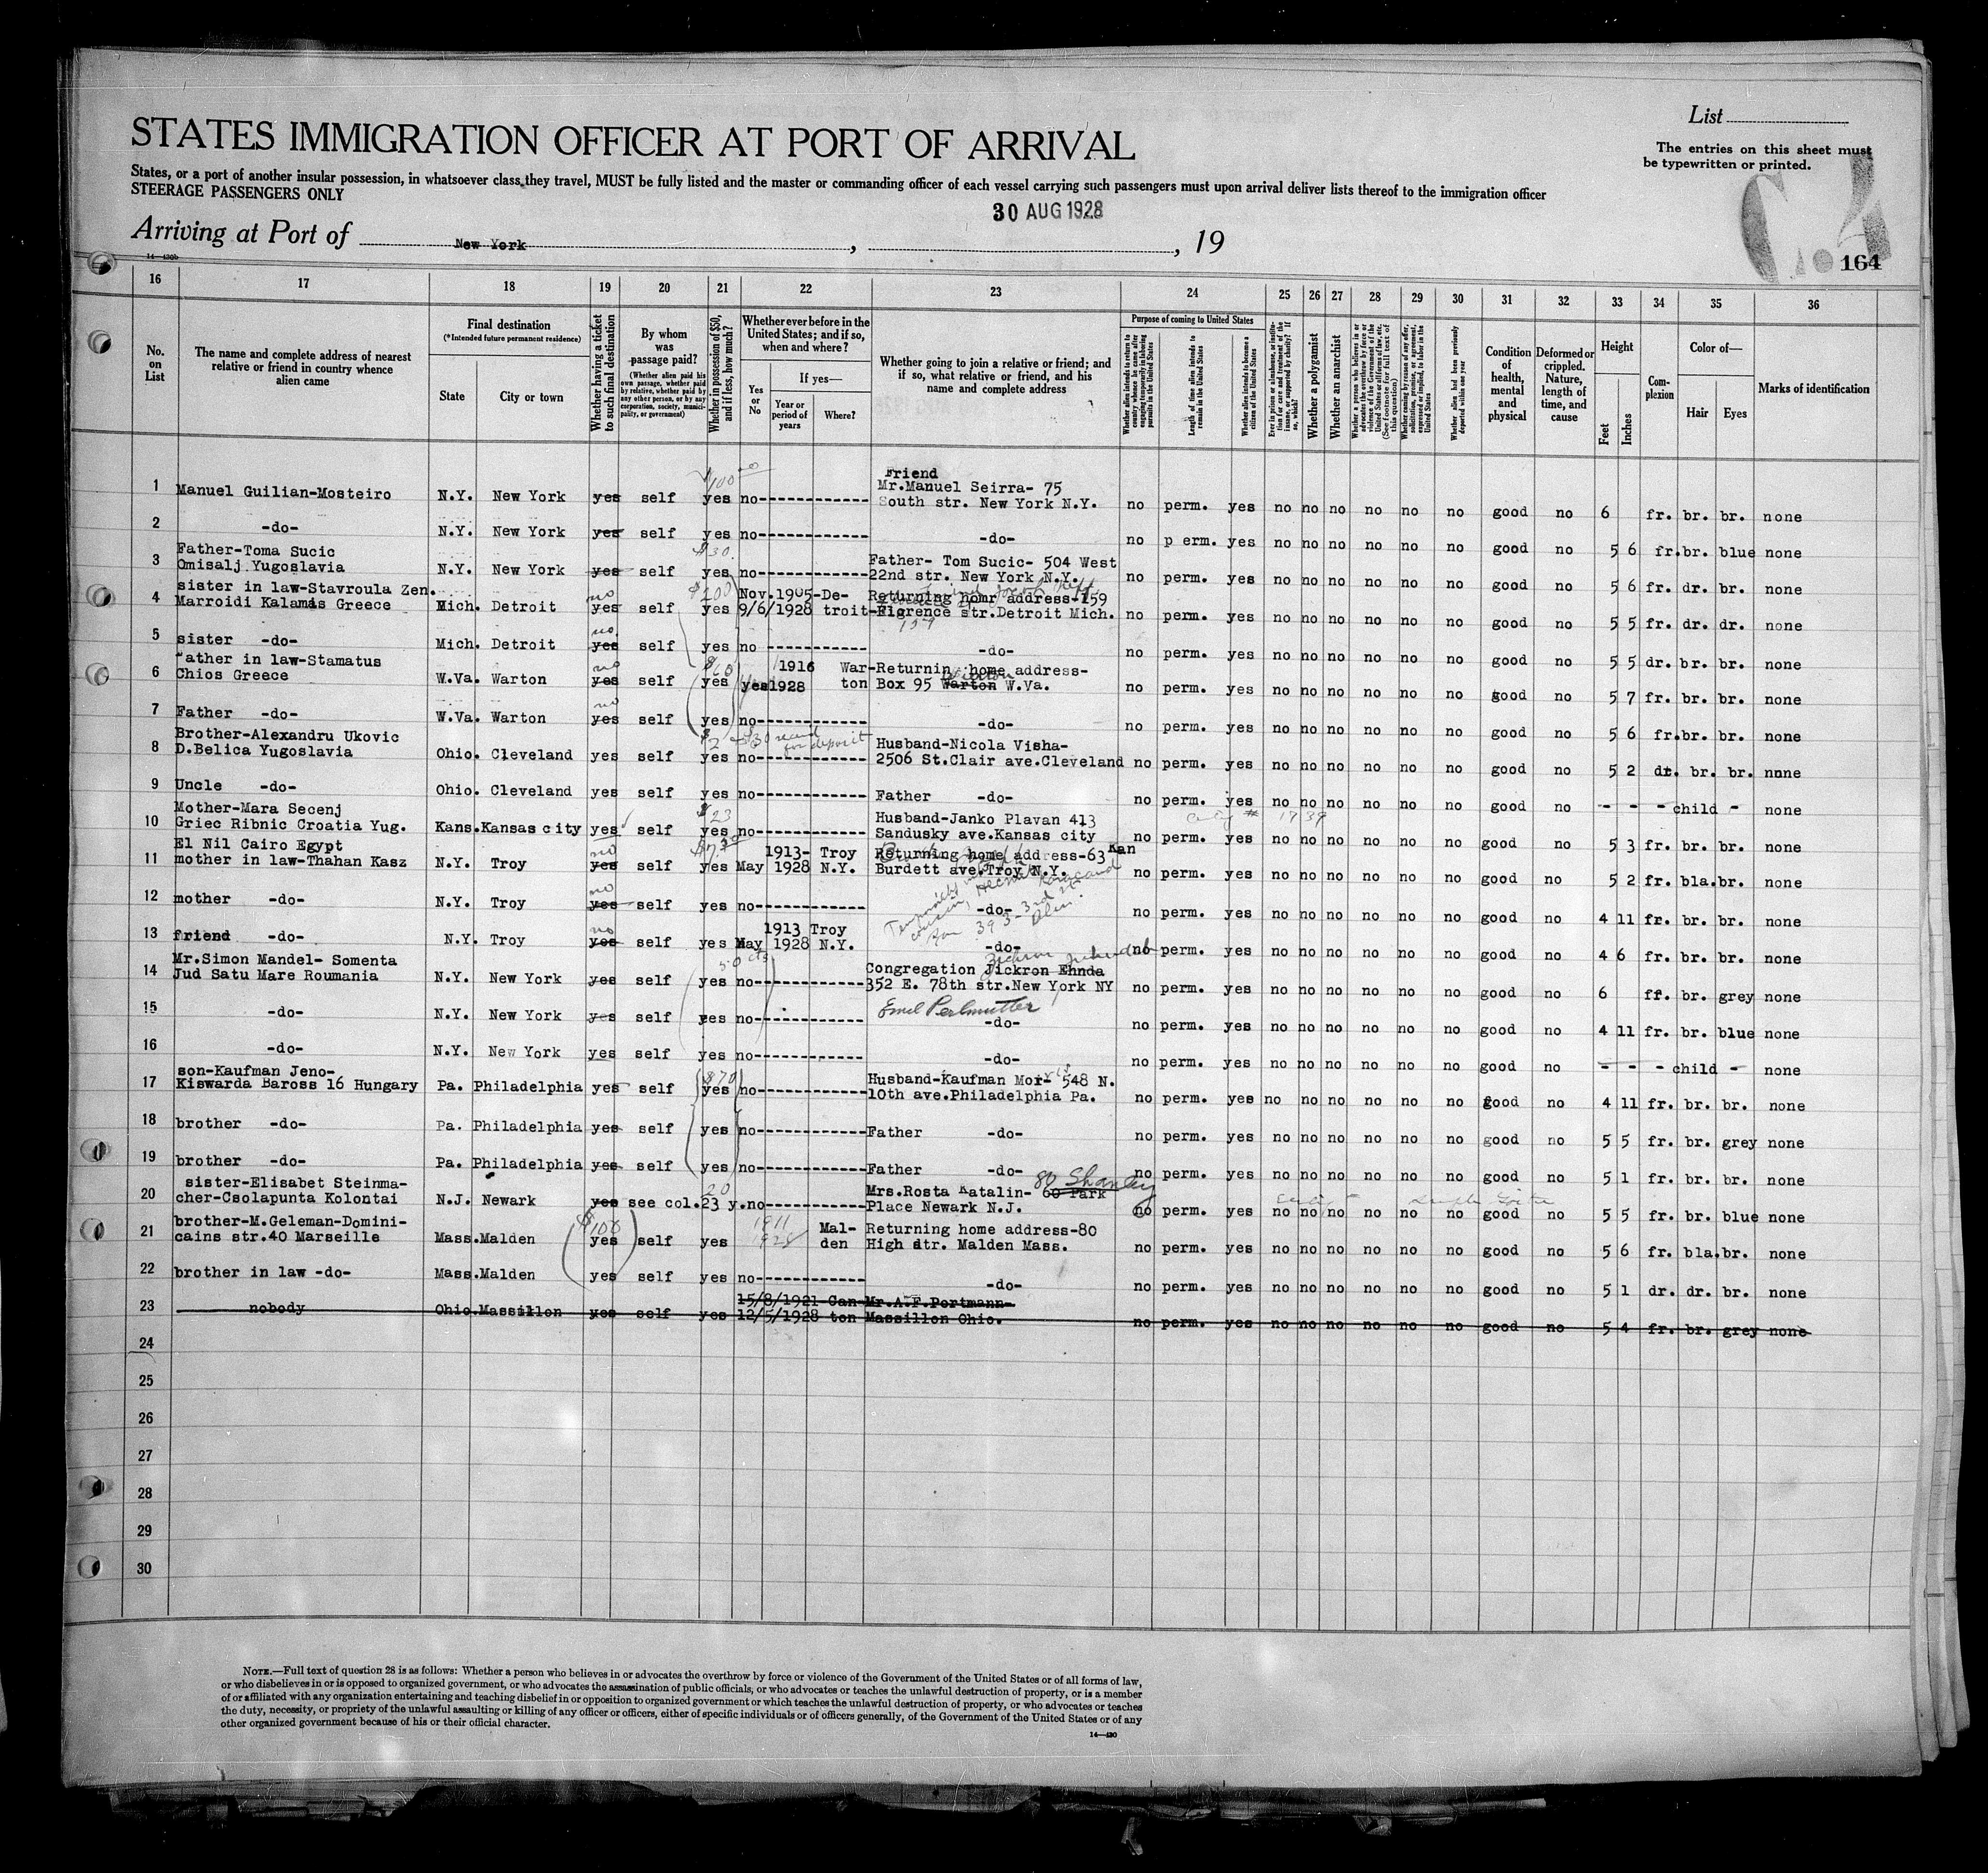 List
The entries on this sheet must
be typewritten or printed.
STATES IMMIGRATION OFFICER AT PORT OF ARRIVAL
States, or a port of another insular possession, in whatsoever class they travel, MUST be fully listed and the master or commanding officer of each vessel carrying such passengers must upon arrival deliver lists thereof to the immigration officer
STEERAGE PASSENGERS ONLY
30 AUG 1928
Arriving at Port of New York , , 19
14—430b
164
16 17 18 19 20 21 22 23 24 25 26 27 28 29 30 31 32 33 34 35 36
No. on List
The name and complete address of nearest relative or friend in country whence alien came
Final destination
(*Intended future permanent residence)
State City or town
Whether having a ticket to such final destination
By whom was passage paid?
(Whether alien paid his own passage, whether paid by relative, whether paid by any other person, or by any corporation, society, municipality, or government)
Whether in possession of $50, and if less, how much?
Whether ever before in the United States; and if so, when and where?
Yes or No
If yes—
Year or period of years
Where?
Whether going to join a relative or friend; and if so, what relative or friend, and his name and complete address
Purpose of coming to United States
Whether alien intends to return to country whence he came after engaging temporarily in laboring pursuits in the United States
Length of time alien intends to remain in the United States
Whether alien intends to become a citizen of the United States
Ever in prison or almshouse, or institution for care and treatment of the insane, or supported by charity? If so, which?
Whether a polygamist
Whether an anarchist
Whether a person who believes in or advocates the overthrow by force or violence of the Government of the United States or all forms of law, etc. (See footnote for full text of this question)
Whether coming by reason of any offer, solicitation, promise, or agreement, expressed or implied, to labor in the United States
Whether alien had been previously deported within one year
Condition of health, mental and physical
Deformed or crippled. Nature, length of time, and cause
Height
Feet Inches
Complexion
Color of—
Hair Eyes
Marks of identification
$100
Friend
1 Manuel Guilian-Mosteiro N.Y. New York yes self yes no------------ Mr.Manuel Seirra- 75
South str. New York N.Y. no perm. yes no no no no no no good no 6 fr. br. br. none
2 -do- N.Y. New York yes self yes no------------ -do- no p erm. yes no no no no no no good no 5 6 fr. br. blue none
$30.
Father-Toma Sucic Father- Tom Sucic- 504 West
3 Omisalj Yugoslavia N.Y. New York yes self yes no------------ 22nd str. New York N.Y. no perm. yes no no no no no no good no 5 6 fr. dr. br. none
sister in law-Stavroula Zen. no $200 Nov.1905-De- Returning homr address-159
4 Marroidi Kalamis Greece Mich. Detroit yes self yes 9/6/1928 troit- Florence str.Detroit Mich. no perm. yes no no no no no no good no 5 5 fr. dr. dr. none
159
no
5 sister -do- Mich. Detroit yes self yes no ----------- -do- no perm. yes no no no no no no good no 5 5 dr. br. br. none
ather in law-Stamatus no 1916 War- Returnin home address-
6 Chios Greece W.Va. Warton yes self yes yes 1928 ton Box 95 Warton W.Va. no perm. yes no no no no no no good no 5 7 fr. br. br. none
no
7 Father -do- W.Va. Warton yes self yes no------------ -do- no perm. yes no no no no no no good no 5 6 fr. br. br. none
Brother-Alexandru Ukovic $2 $30 for deposit Husband-Nicola Visha-
8 D.Belica Yugoslavia Ohio. Cleveland yes self yes no------------ 2506 St.Clair ave.Cleveland no perm. yes no no no no no no good no 5 2 dr. br. br. nnne
9 Uncle -do- Ohio. Cleveland yes self yes no------------ Father -do- no perm. yes no no no no no no good no - - - child - none
Mother-Mara Secenj $23 Husband-Janko Plavan 413
10 Griec Ribnic Croatia Yug. Kans. Kansas city yes self yes no------------ Sandusky ave.Kansas city Kan no perm. yes no no no no no no good no 5 3 fr. br. br. none
El Nil Cairo Egypt no 1913- Troy Returning home address-63
11 mother in law-Thahan Kasz N.Y. Troy yes self yes May 1928 N.Y. Burdett ave.Troy N.Y. no perm. yes no no no no no no good no 5 2 fr. bla. br. none
no
12 mother -do- N.Y. Troy yes self yes no------------ -do- no perm. yes no no no no no no good no 4 11 fr. br. br. none
no 1913 Troy
13 friend -do- N.Y. Troy yes self yes May 1928 N.Y. -do- no perm. yes no no no no no no good no 4 6 fr. br. br. none
Mr.Simon Mandel- Somenta 50 cts Congregation Jickron Ehnda
14 Jud Satu Mare Roumania N.Y. New York yes self yes no------------ 352 E. 78th str.New York NY no perm. yes no no no no no no good no 6 fr. br. grey none
Emil Perlmutter
15 -do- N.Y. New York yes self yes no------------ -do- no perm. yes no no no no no no good no 4 11 fr. br. blue none
16 -do- N.Y. New York yes self yes no------------ -do- no perm. yes no no no no no no good no - - - child - none
son-Kaufman Jeno- $70 Husband-Kaufman Mor- 548 N.
17 Kiswarda Baross 16 Hungary Pa. Philadelphia yes self yes no------------ 10th ave.Philadelphia Pa. no perm. yes no no no no no no good no 4 11 fr. br. br. none
18 brother -do- Pa. Philadelphia yes self yes no------------ Father -do- no perm. yes no no no no no no good no 5 5 fr. br. grey none
19 brother -do- Pa. Philadelphia yes self yes no------------ Father -do- no perm. yes no no no no no no good no 5 1 fr. br. br. none
sister-Elisabet Steinma- 20 Mrs.Rosta Katalin- 60 Park 80
20 cher-Csolapunta Kolontai N.J. Newark yes see col.23 y.no------------ Place Newark N.J. no perm. yes no no no no no no good no 5 5 fr. br. blue none
brother-M.Geleman-Domini- $100 1911 Mal- Returning home address-80
21 cains str.40 Marseille Mass. Malden yes self yes 1928 den High str. Malden Mass. no perm. yes no no no no no no good no 5 6 fr. bla. br. none
22 brother in law -do- Mass. Malden yes self yes no------------ -do- no perm. yes no no no no no no good no 5 1 dr. dr. br. none
15/8/1921 Can- Mr.A.F.Portmann-
23 nobody Ohio. Massillon yes self yes 12/5/1928 ton Massillon Ohio. no perm. yes no no no no no no good no 5 4 fr. br. grey none
24
25
26
27
28
29
30
NOTE.—Full text of question 28 is as follows: Whether a person who believes in or advocates the overthrow by force or violence of the Government of the United States or of all forms of law,
or who disbelieves in or is opposed to organized government, or who advocates the assassination of public officials, or who advocates or teaches the unlawful destruction of property, or is a member
of or affiliated with any organization entertaining and teaching disbelief in or opposition to organized government or which teaches the unlawful destruction of property, or who advocates or teaches
the duty, necessity, or propriety of the unlawful assaulting or killing of any officer or officers, either of specific individuals or of officers generally, of the Government of the United States or of any
other organized government because of his or their official character.
14—430